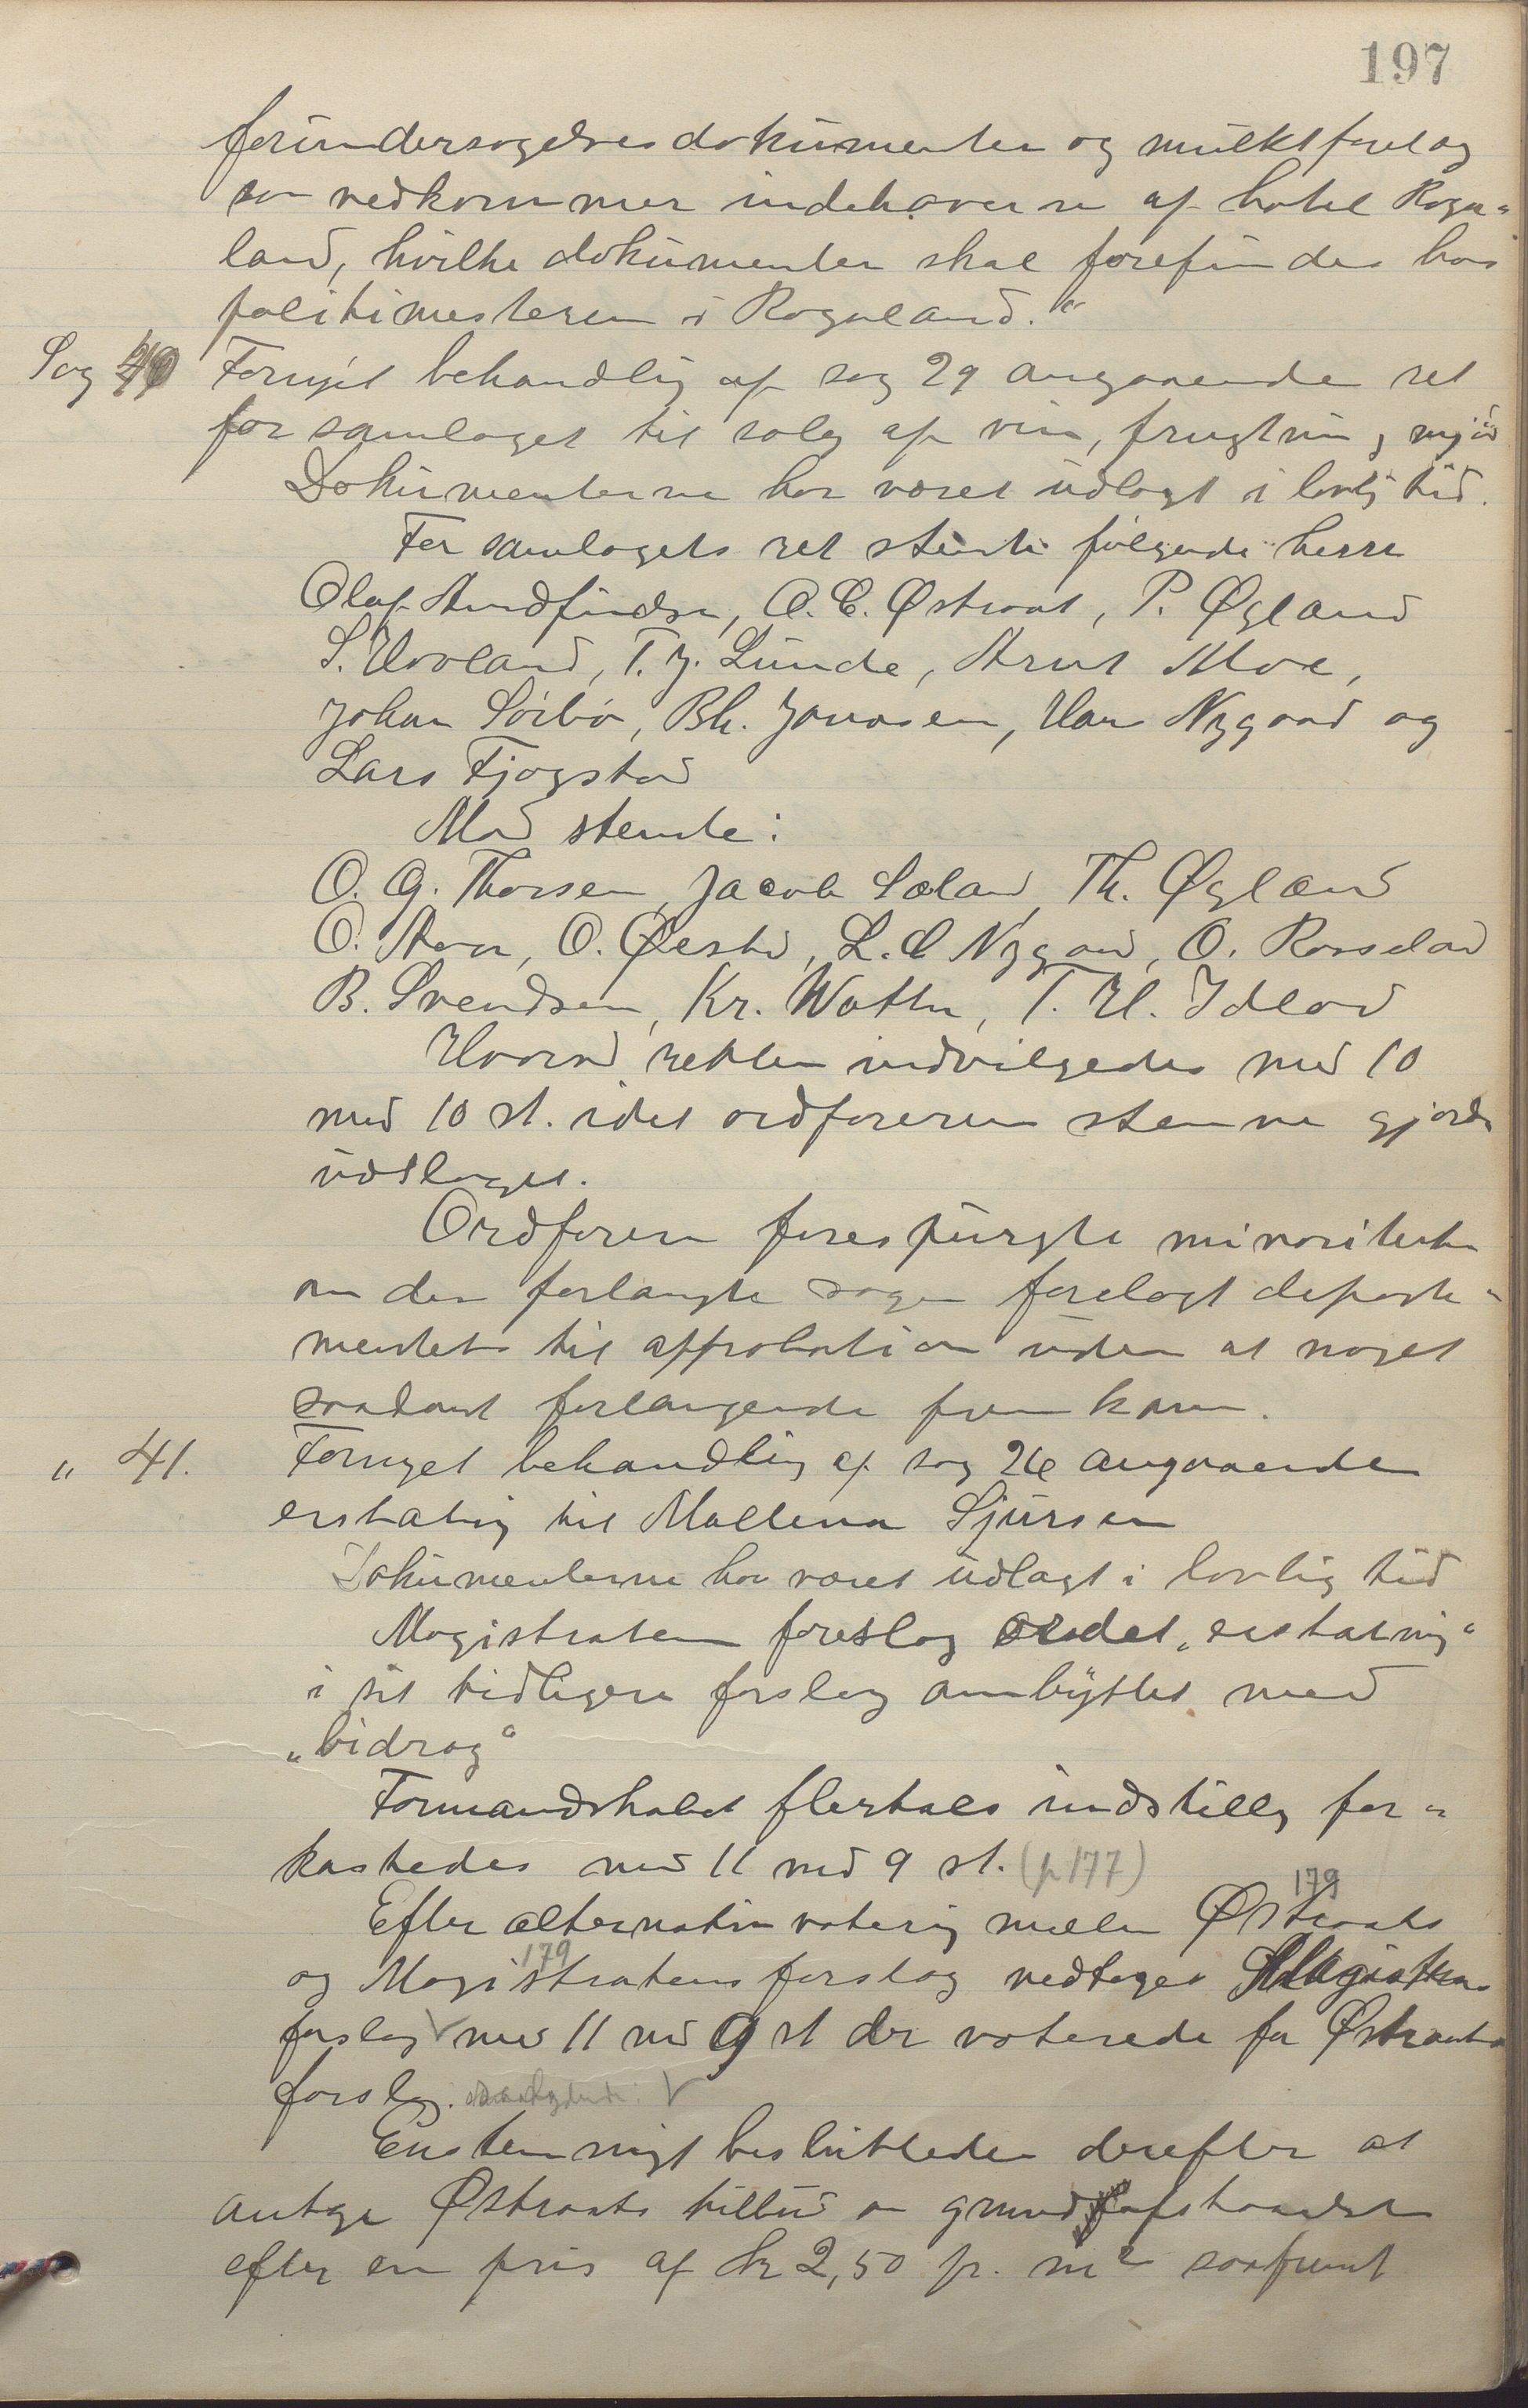 197
forundersøgelsesdokumenter og mulktforelag
som vedkommer indehaverne af hotel Roga-
land, hvilke dokumenter skal forefindes hos
politimesteren i Rogaland."
Sag 40 Fornyet behandling af sag 29 angaaende ret
for samlaget til salg af vin, frugtvin, mjød
Dokumenterne har været udlagt i lovlig tid.
For samlagets ret stemte følgende herrer
Olaf Arndfindsen, O. C. Østraat, P. Øgland
S. Hovland, T. J. Lunde, Arnt Moe,
Johan Sørbø, Bh. Jonassen, Hans Nygaard og
Lars Fjogstad
Mod stemte:
O. G. Thorsen, Jacob Sæland, Th. Øgland
O. Aron, O. Øestad, L. C Nygaard, O. Rosseland
B. Svendsen, Kr. Watne, T. H. Idland
Hvorved retten indvilgedes med 10
mod 10 st. idet ordførerens stemme gjorde
udslaget.
Ordføreren forespurgte minoriteten
om den forlangte sagen forelagt departe-
mentet til approbation uden at noget
saadant forlangende fremkom.
" 41. Fornyet behandling af sag 26 angaaende
erstatning til Mallena Sjursen
Dokumenterne har været udlagt i lovlig tid
Magistraten foreslog ordet „erstatning"
i sit tidligere forslag ombyttet med
„bidrag"
Formandskabet flertals indstilling for-
kastedes med 11 mod 9 st. (p 177)
179
Efter alternativ votering mellem Østraats
179
og Magistratens forslag vedtoges Magistratens
forslag med 11 mod 9 st der voterede for Østraats
forslag.
Enstemmigt besluttedes derefter at
antage Østraats tilbud om grundafstaaelse
efter en pris af kr 2,50 pr. m² saafremt